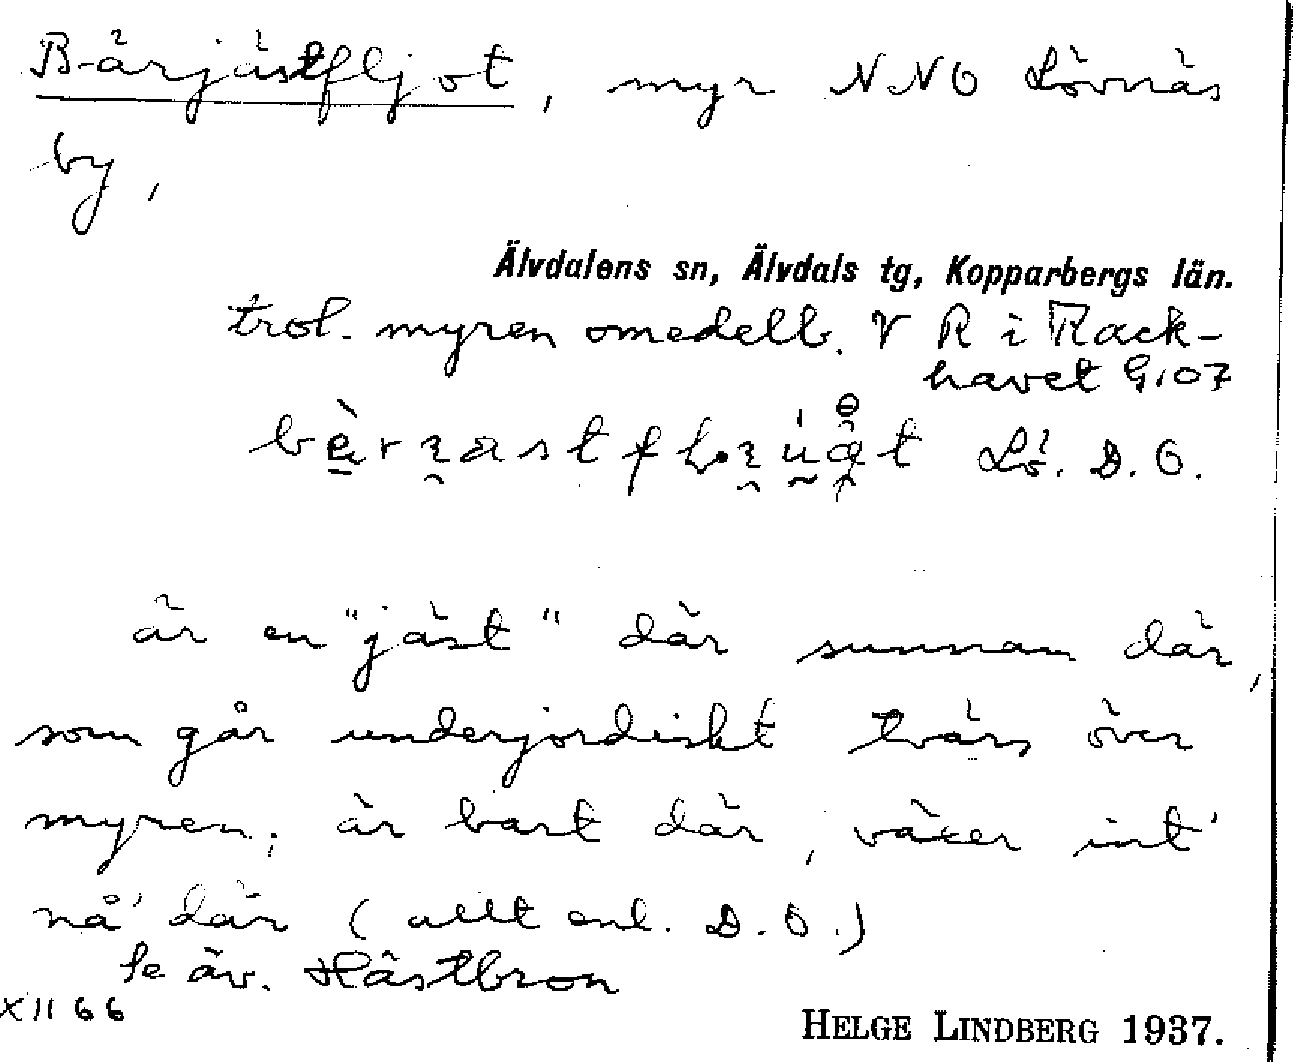 Bärjästfljot, myr NNO Lövnäs
by,
Älvdalens sn, Älvdals tg, Kopparbergs län.
trol. myren omedelb. V R i Rack-
havet G107
Lö. D. O.
är en "jäst" där sunnan där,
som går underjordiskt tvärs över
myren; är bart där, växer int'
nå' där (allt enl. D.O.)
Se äv. Hästbron
XII 66
HELGE LINDBERG 1937.